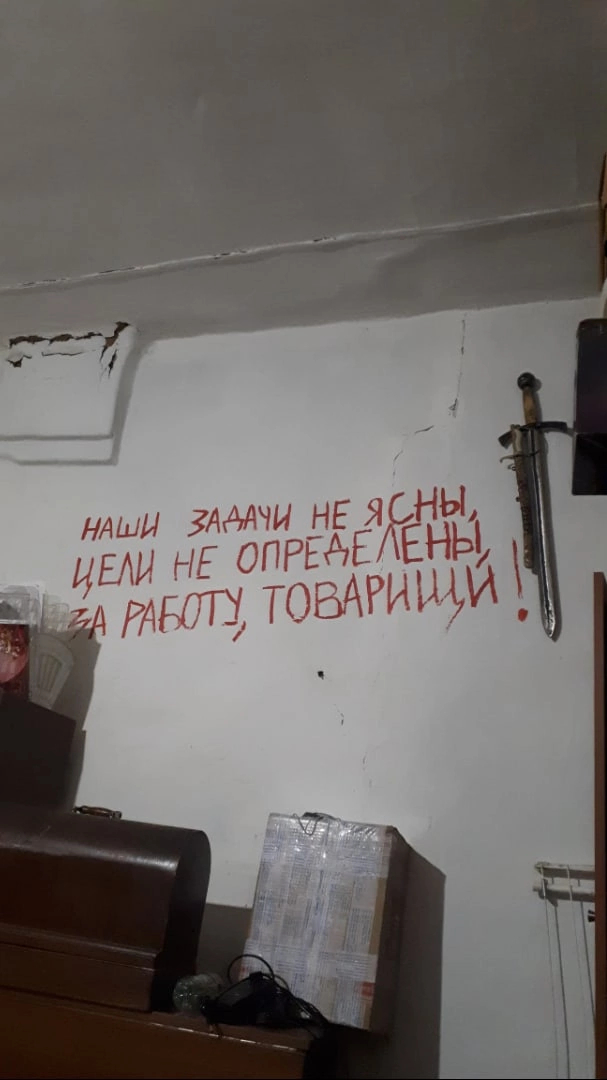 НАШИ ЗАДАЧИ НЕ ЯСНЫ,
ЦЕЛИ НЕ ОПРЕДЕЛЕНЫ,
ЗА РАБОТУ, ТОВАРИЩИ!